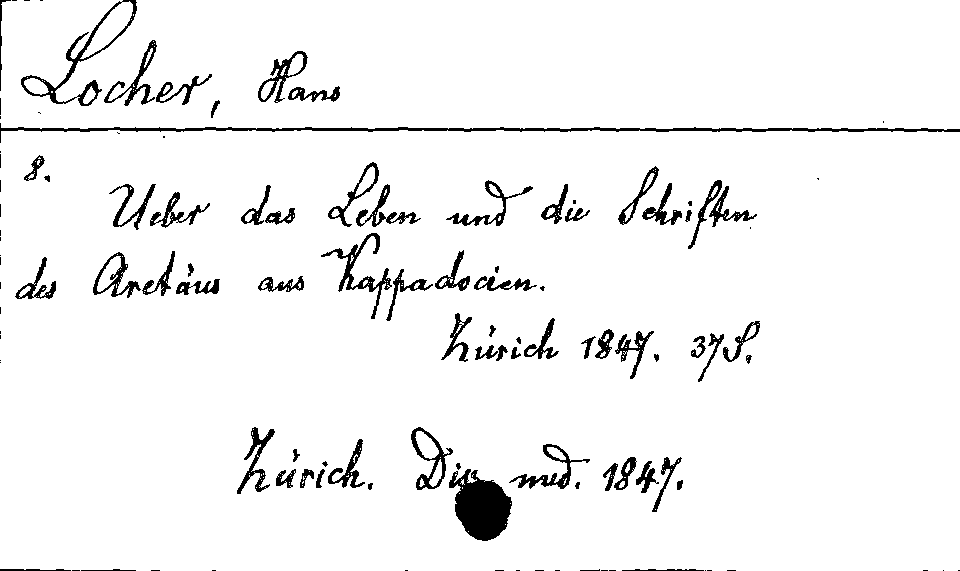 Locher, Hans
8.
Ueber das Leben und die Schriften
des Aretäus aus Kappadocien.
Zürich 1847. 37 S.
Zürich. Diss med. 1847.